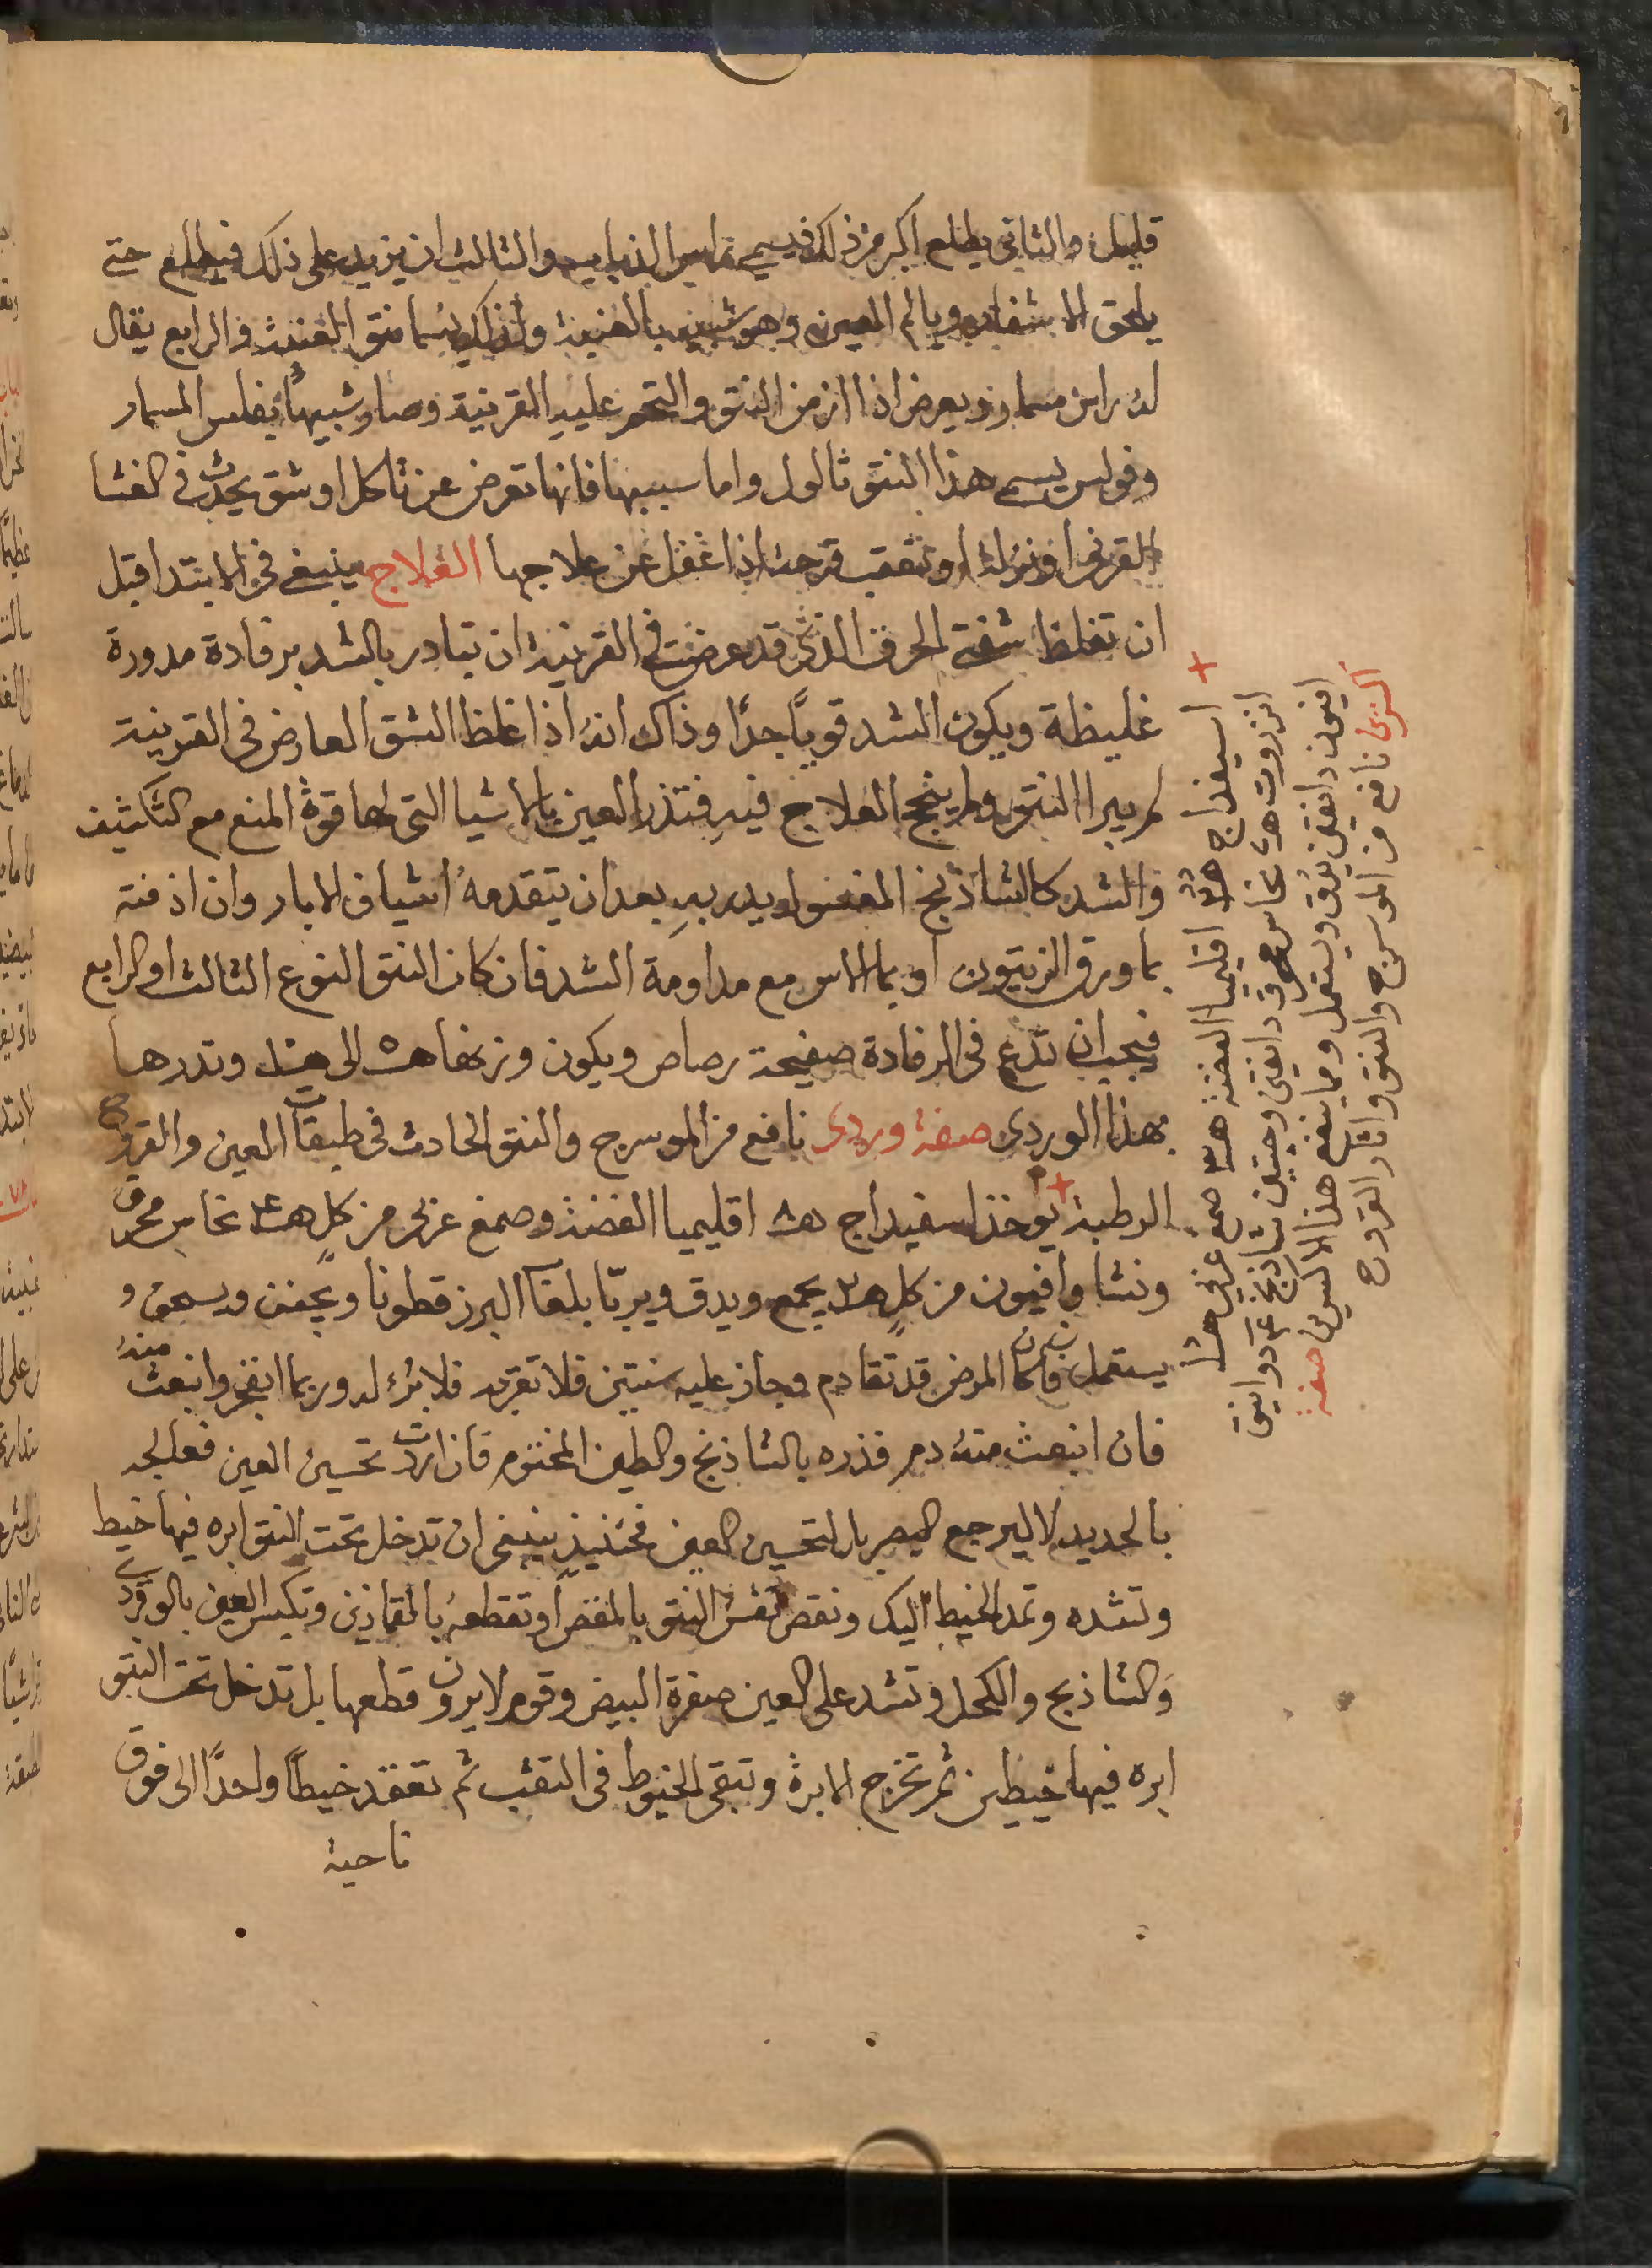 قليلا والثاني يطلع اكبر من ذلك فيسمى راس الذبابه والثالث ان يزيد على ذلك فيطلع حتى
يلحق الاشفار ويالم العين وهو شبيه بالعنبة ولذلك يسما نتو العنبة والرابع يقال
له راس مسمار ويعرض اذا ازمن النتو والتحم عليه القرنية وصار شبيهًا بفلس المسمار
وفولس يسمى هذا النتو ثالول واما سببها فانها تعرض عن تاكل او شق يحدث في الغشا
القرني او نزله او تتعقب قرحة اذا غفل عن علاجها العلاج ينبغى في الابتدا قبل
ان تغلظ شفتى الخرق الذي قد عرضت في القرنية ان تبادر بالشد برفادة مدورة
غليظة ويكون الشد قويًا جدًا وذاك انه اذا غلظ الشق العارض في القرنية
لم يبرا النتو ولم ينجح العلاج فيه فتذر العين بالاشيا التى لها قوة المنع مع التكثيف
والشد كالشاذنج المغسول يدر به بعد ان يتقدمه اشياف الابار وان اذفته
بما ورق الزيتون او بما الاس مع مداومة الشد فان كان النتو النوع الثالث او الرابع
فيجب ان تدع في الرفادة صفيحة رصاص ويكون وزنها الى وتدرها
بهذا الوردى صفة وردى نافع من الموسرج والنتو الحادث في طبقات العين والقروح
الرطبة يوخذ اسفيداج اقليميا الفضة وصمغ عربى من كلٍ نحاس محرق
ونشا وافيون من كلٍ يجمع ويدق ويربّا بلعاب البرز قطونا ويجفف ويسحق و
يستعمل فان كان المرض قد تقادم وجاز عليه سنتين فلا تقربه فلا برء له وربما انفجر وانبعث منه
فان انبعث منه دم فذره بالشاذنج والطين المختوم فان اردت تحسين العين فعالجه
بالحديد لا ليرجع البصر بل لتحسين العين فحينئذٍ ينبغى ان تدخل تحت النتو ابره فيها خيط
وتشده وتمد الخيط اليك ونقص نفس النتو بالمقص او تقطعه بالقمادين وتكبس العين بالوردى
والشاذنج والكحل وتشد على العين صفرة البيض وقوم لا يرون قطعها بل تدخل تحت النتو
ابره فيها خيطين ثم تخرج الابرة وتبقى الخيوط في الثقب ثم تعقد خيطًا واحدًا الى فوق
ناحية
اسفيداج اقليميا الفضة صمغ عربى
انزروت نحاس محرق دانقين وحبتين شاذنج دوانيق
افيون دانقين يدق ويستعمل ومما ينفع هذا الاكسرين صفة
اكسرين نافع من الموسرج والنتو واثار القروح